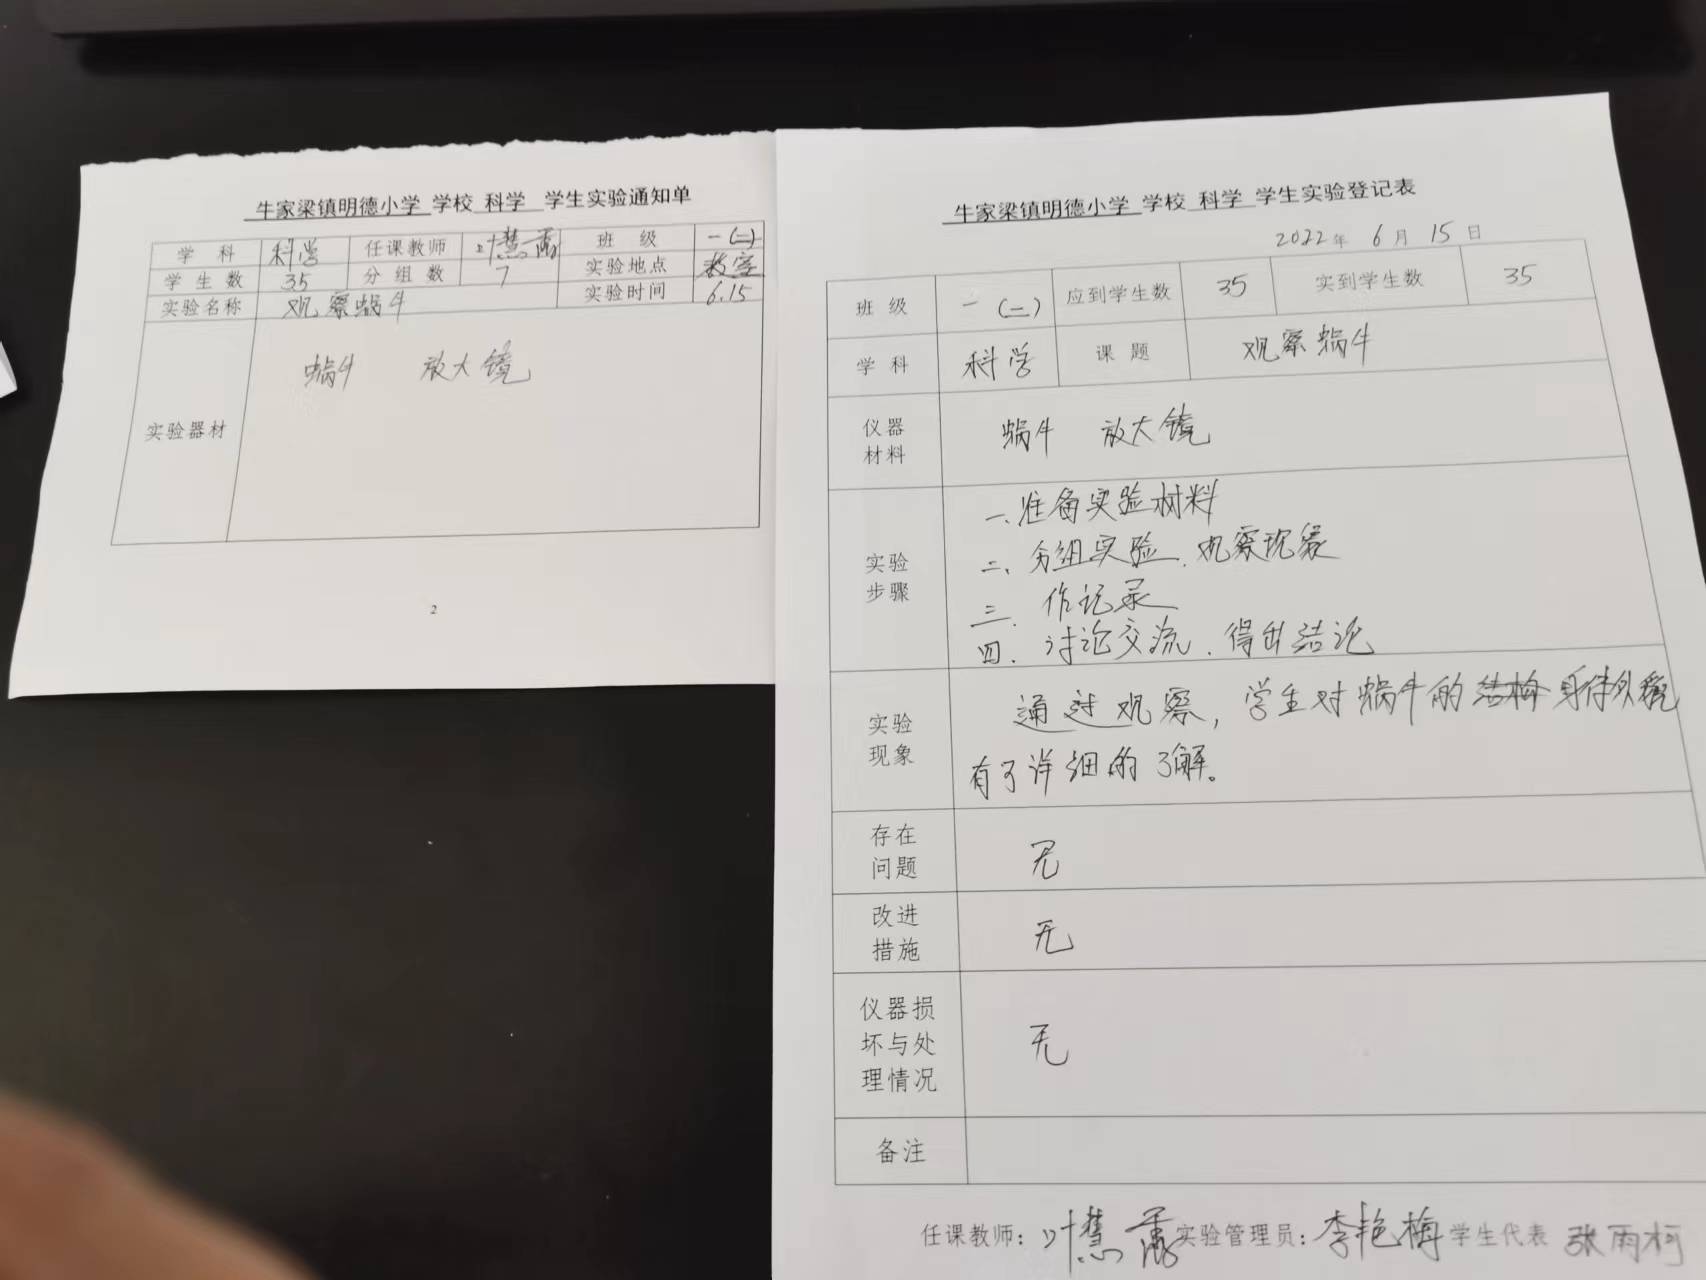 牛家梁镇明德小学 学校 科学 学生实验通知单
学 科 科学 任课教师 叶慧 班 级 一(二)
学生数 35 分组数 7 实验地点 教室
实验名称 观察蜗牛 实验时间 6.15
实验器材 蜗牛 放大镜
2
牛家梁镇明德小学 学校 科学 学生实验登记表
2022年 6月 15日
班 级 一(二) 应到学生数 35 实到学生数 35
学 科 科学 课 题 观察蜗牛
仪器
材料
蜗牛 放大镜
实验
步骤
一、准备实验材料
二、分组实验、观察现象
三、作记录
四、讨论交流、得出结论
实验
现象
通过观察,学生对蜗牛的 身体外貌
有了详细的了解。
存在
问题
无
改进
措施
无
仪器损
坏与处
理情况
无
备注
任课教师: 叶慧 实验管理员: 李艳梅 学生代表 张雨柯